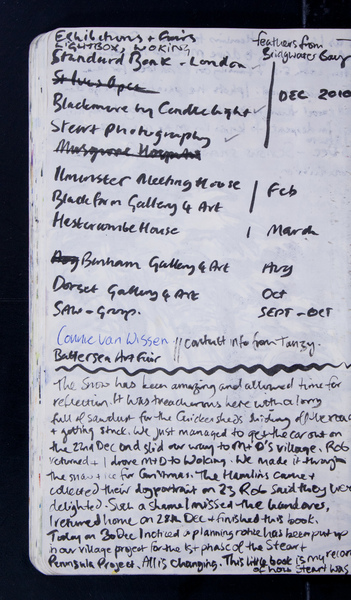 Exhibitions + Fairs
LIGHTBOX, WOKING
feathers from
Bridgwater Bay
Standard Bank - London
DEC 2010
Blackmore by Candlelight ✓
Steart Photography ✓
Musgrove Hospital
Ilminster Meeting House
Feb
Black farm Gallery & Art
Hestercombe House | March
Benham Gallery & Art Aug
Dorset Gallery & Art Oct
SAW - Group. SEPT - OCT
Connie van Wissen // contact info from Tanzy.
Battersea Art Fair
The Snow has been amazing and allowed time for
reflection. It was treacherous here with a lorry
full of sawdust for the sliding off the road
+ getting stuck. We just managed to get the car out on
the 22nd Dec and slid our way to M + D's village. Rob
returned + I drove M + D to Woking. We made it through
the snow + ice for Christmas. The Hamlins came +
collected their dog portrait on 23 Rob said they were
delighted. Such a shame I missed the
I returned home on 28th Dec + finished this book.
Today on 30 Dec I noticed a planning notice has been put up
in our village project for the 1st phase of the Steart
Peninsula Project. All is changing. This little book is my record
of how Steart was